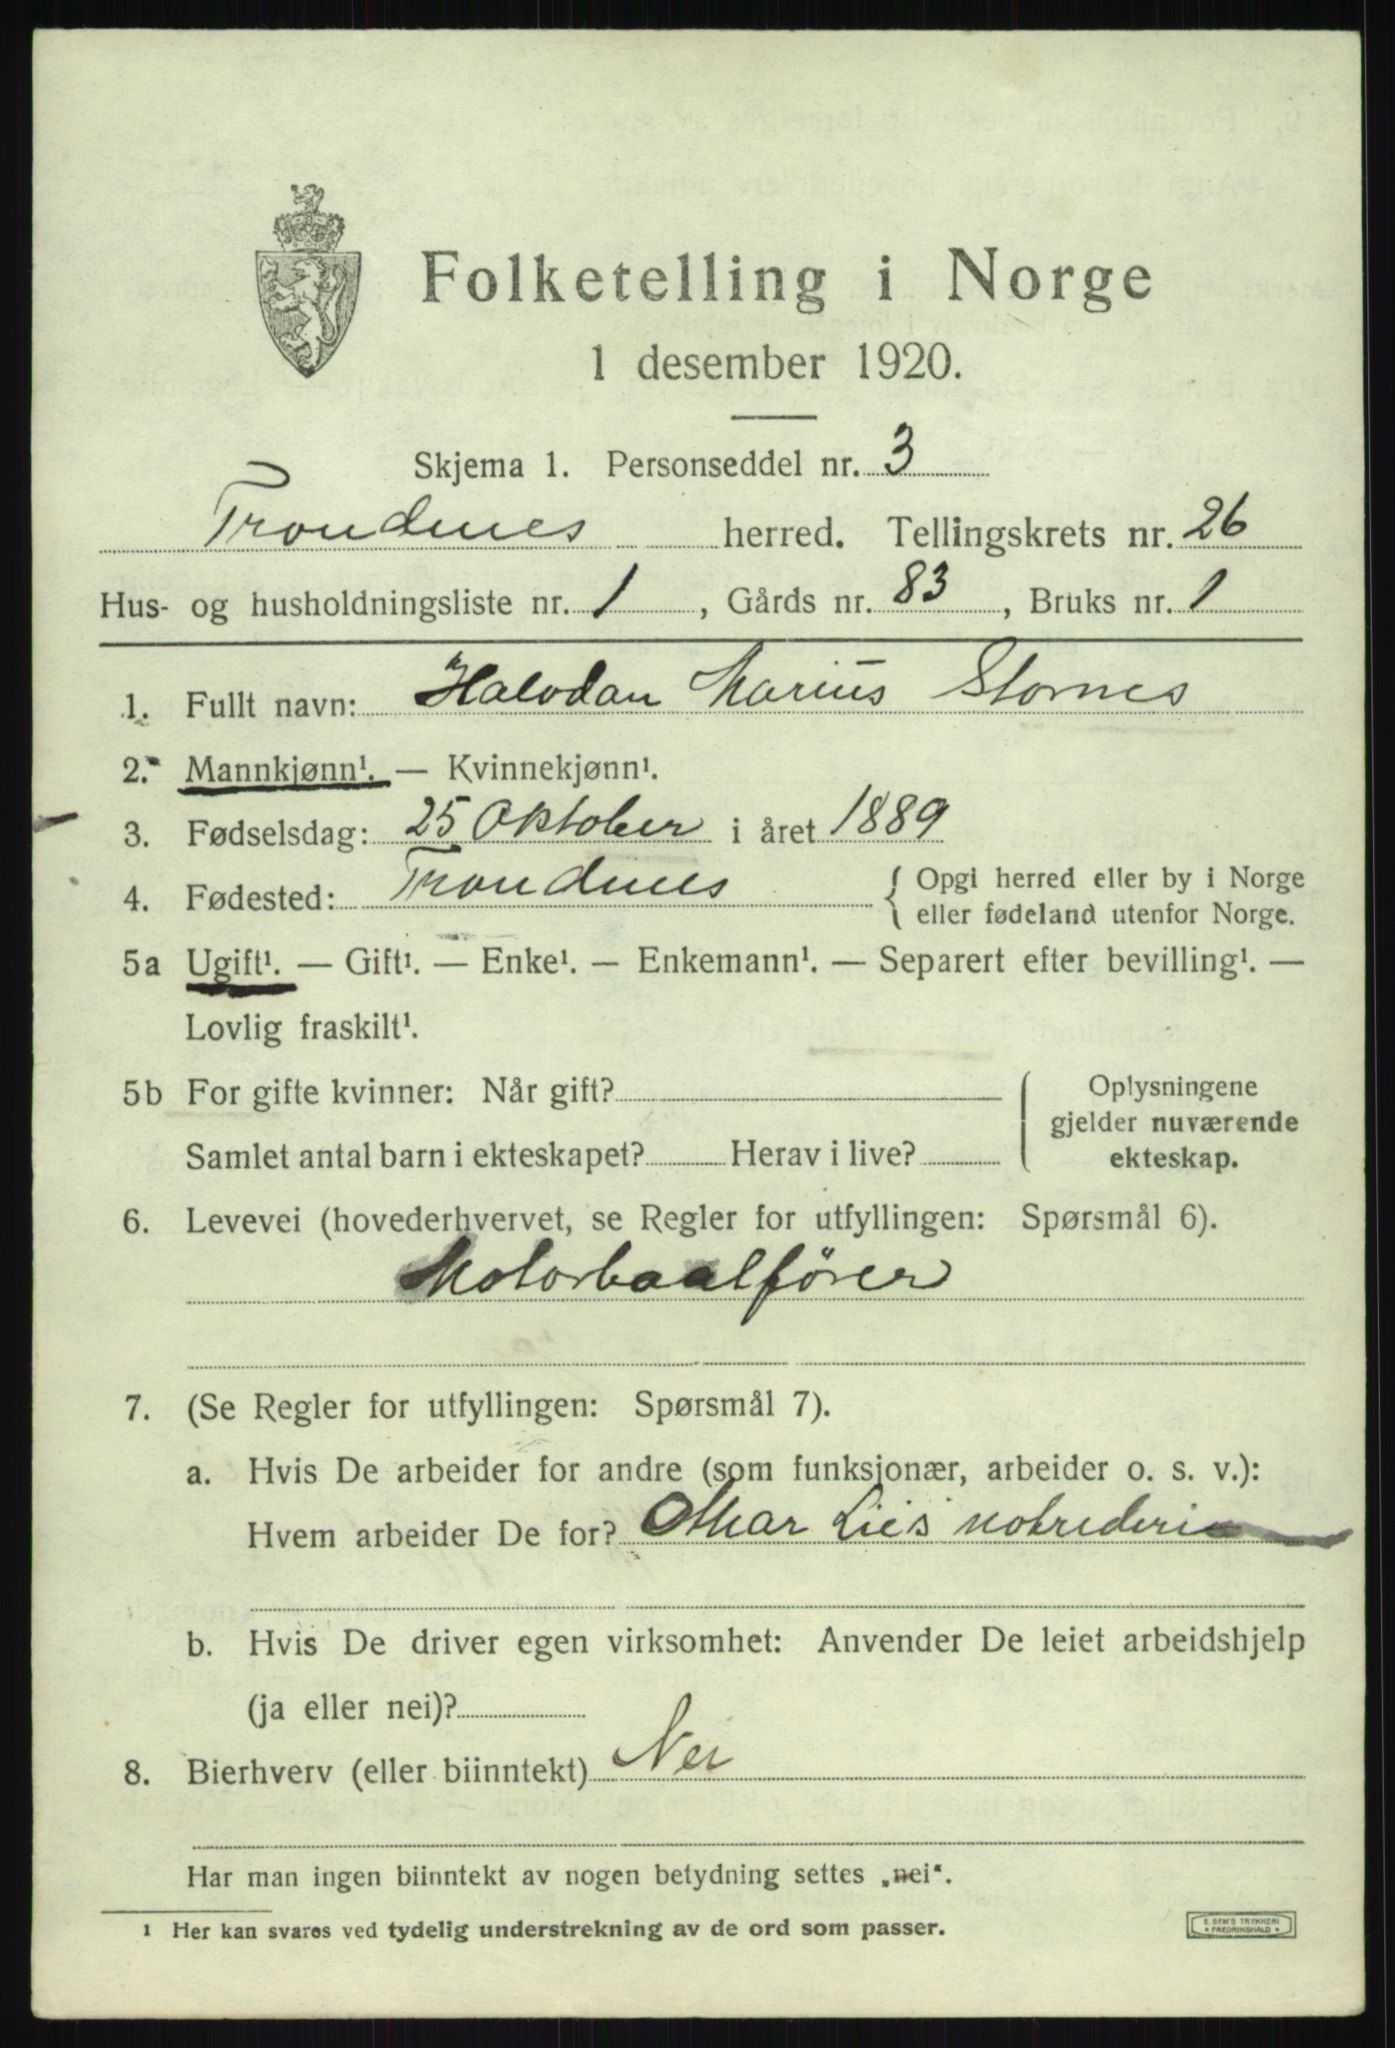 Folketelling i Norge
1 desember 1920.
Skjema 1. Personseddel nr. 3
Trondenes herred. Tellingskrets nr. 26
Hus- og husholdningsliste nr. 1, Gårds nr. 83, Bruks nr. 1
1. Fullt navn: Halvdan Marius Stornes
2. Mannkjønn¹. — Kvinnekjønn¹.
3. Fødselsdag: 25 Oktober i året 1889
4. Fødested: Trondenes { Opgi herred eller by i Norge
eller fødeland utenfor Norge.
5a Ugift¹. — Gift¹. — Enke¹. — Enkemann¹. — Separert efter bevilling¹. —
Lovlig fraskilt¹.
5b For gifte kvinner: Når gift?
Samlet antal barn i ekteskapet? Herav i live?
Oplysningene
gjelder nuværende
ekteskap.
6. Levevei (hovederhvervet, se Regler for utfyllingen: Spørsmål 6).
Motorbaatfører
7. (Se Regler for utfyllingen: Spørsmål 7).
a. Hvis De arbeider for andre (som funksjonær, arbeider o. s. v.):
Hvem arbeider De for? Lies notrederi
b. Hvis De driver egen virksomhet: Anvender De leiet arbeidshjelp
(ja eller nei)?
8. Bierhverv (eller biinntekt) Nei
Har man ingen biinntekt av nogen betydning settes „nei“.
¹ Her kan svares ved tydelig understrekning av de ord som passer.
E. SEM'S TRYKKERI
* FREDRIKSHALD *